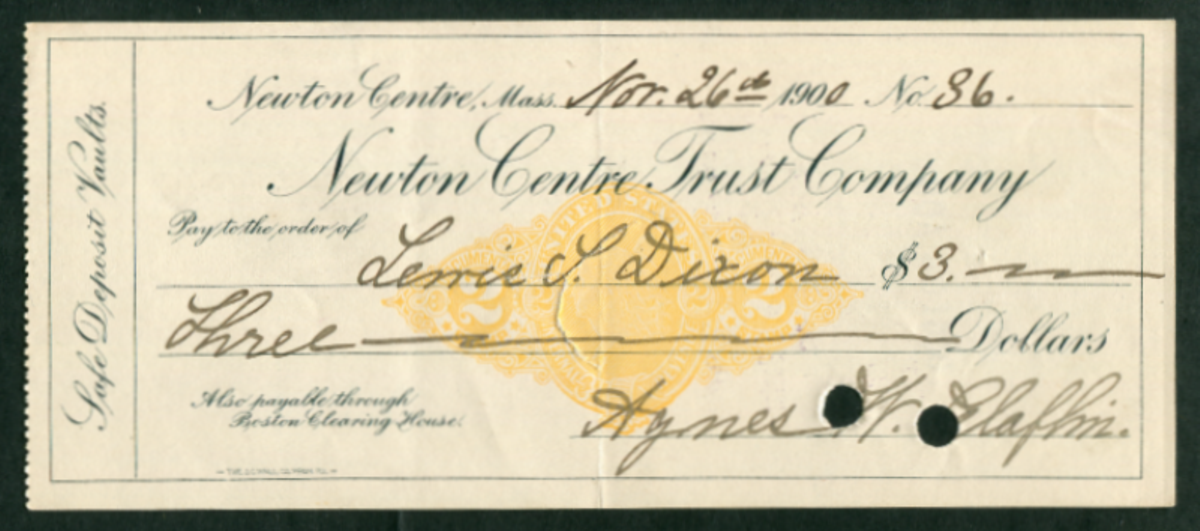 Newton Centre, Mass. Nov. 26th 1900 No. 36.
Newton Centre Trust Company
Pay to the order of
Lewis S. Dixon $3.
Three Dollars
Also payable through
Boston Clearing House.
Agnes W. Claflin.
Safe Deposit Vaults.
UNITED STA
2 2